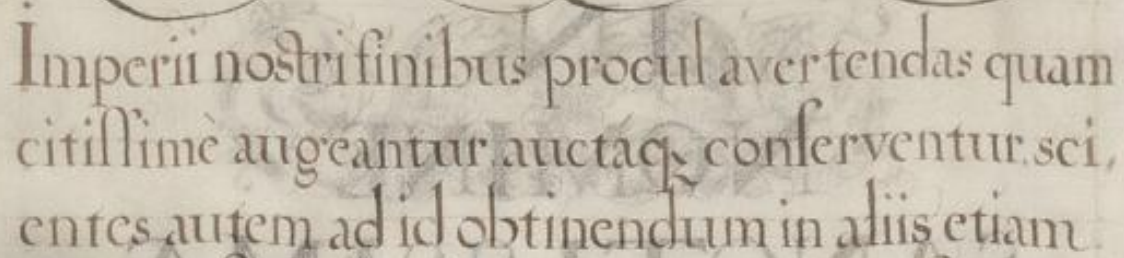 Imperii nostri finibus procul avertendas quam
citiſſimè augeantur auctáq; conſerventur. sci,
entes autem ad id obtinendum in aliis etiam